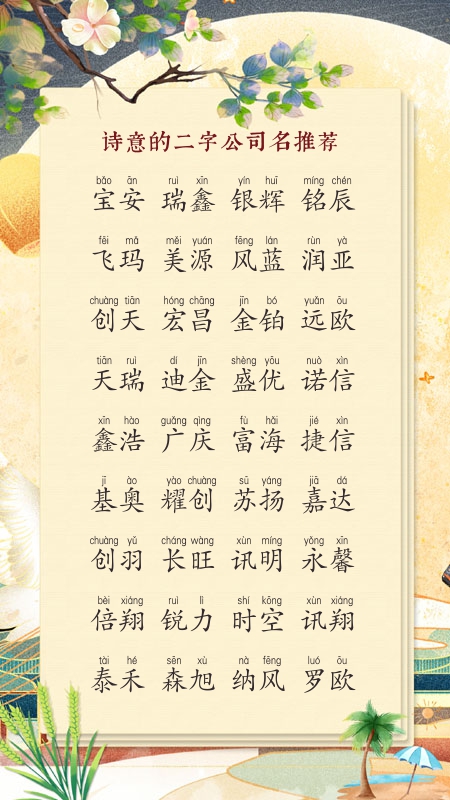 诗意的二字公司名推荐
bǎo ān ruì xīn yín huī míng chén
宝安 瑞鑫 银辉 铭辰
fēi mǎ měi yuán fēng lán rùn yà
飞玛 美源 风蓝 润亚
chuàng tiān hóng chāng jīn bó yuǎn ōu
创天 宏昌 金铂 远欧
tiān ruì dí jīn shèng yōu nuò xìn
天瑞 迪金 盛优 诺信
xīn hào guǎng qìng fù hǎi jié xìn
鑫浩 广庆 富海 捷信
jī ào yào chuàng sū yáng jiā dá
基奥 耀创 苏扬 嘉达
chuàng yǔ cháng wàng xùn míng yǒng xīn
创羽 长旺 讯明 永馨
bèi xiáng ruì lì shí kōng xùn xiáng
倍翔 锐力 时空 讯翔
tài hé sēn xù nà fēng luó ōu
泰禾 森旭 纳风 罗欧